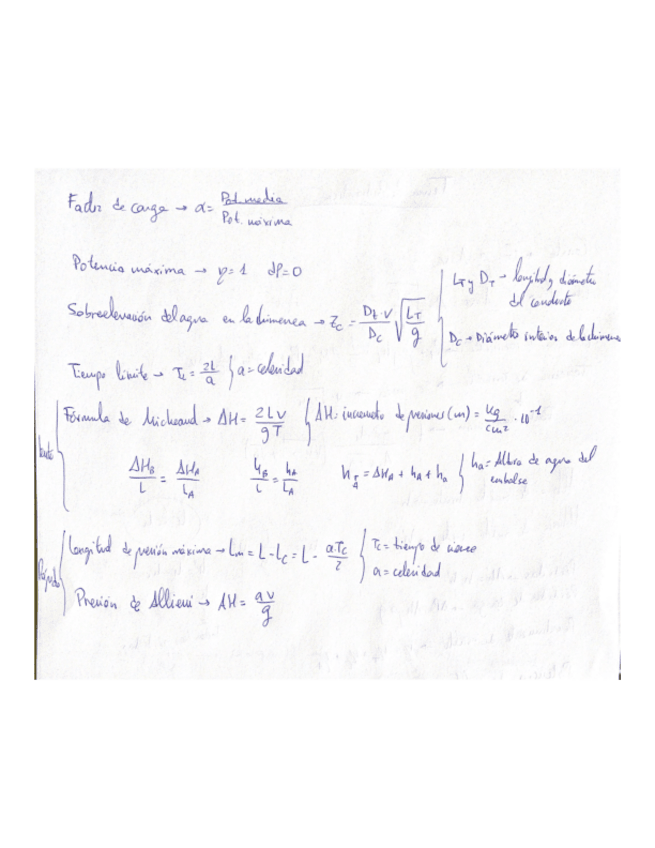 Factor de carga → α = Pot. media / Pot. máxima
Potencia máxima → φ=1 dP=0
Sobreelevación del agua en la chimenea → Zc = Dt·V / Dc √(LT / g)
LT y DT → longitud y diámetro del conducto
Dc → Diámetro interior de la chimenea
Tiempo límite → TL = 2L / a { a = celeridad
lento
Fórmula de Micheaud → ΔH = 2LV / gT { ΔH: incremento de presiones (m) = kg / cm² · 10⁻¹
ΔHB / L = ΔHA / LA
hB / L = hA / LA
hTA = ΔHA + hA + ha { ha = Altura de agua del embalse
Rápido
Longitud de presión máxima → Lm = L - Lc = L - a.Tc / 2 { Tc = tiempo de cierre
a = celeridad
Presión de Allievi → ΔH = av / g